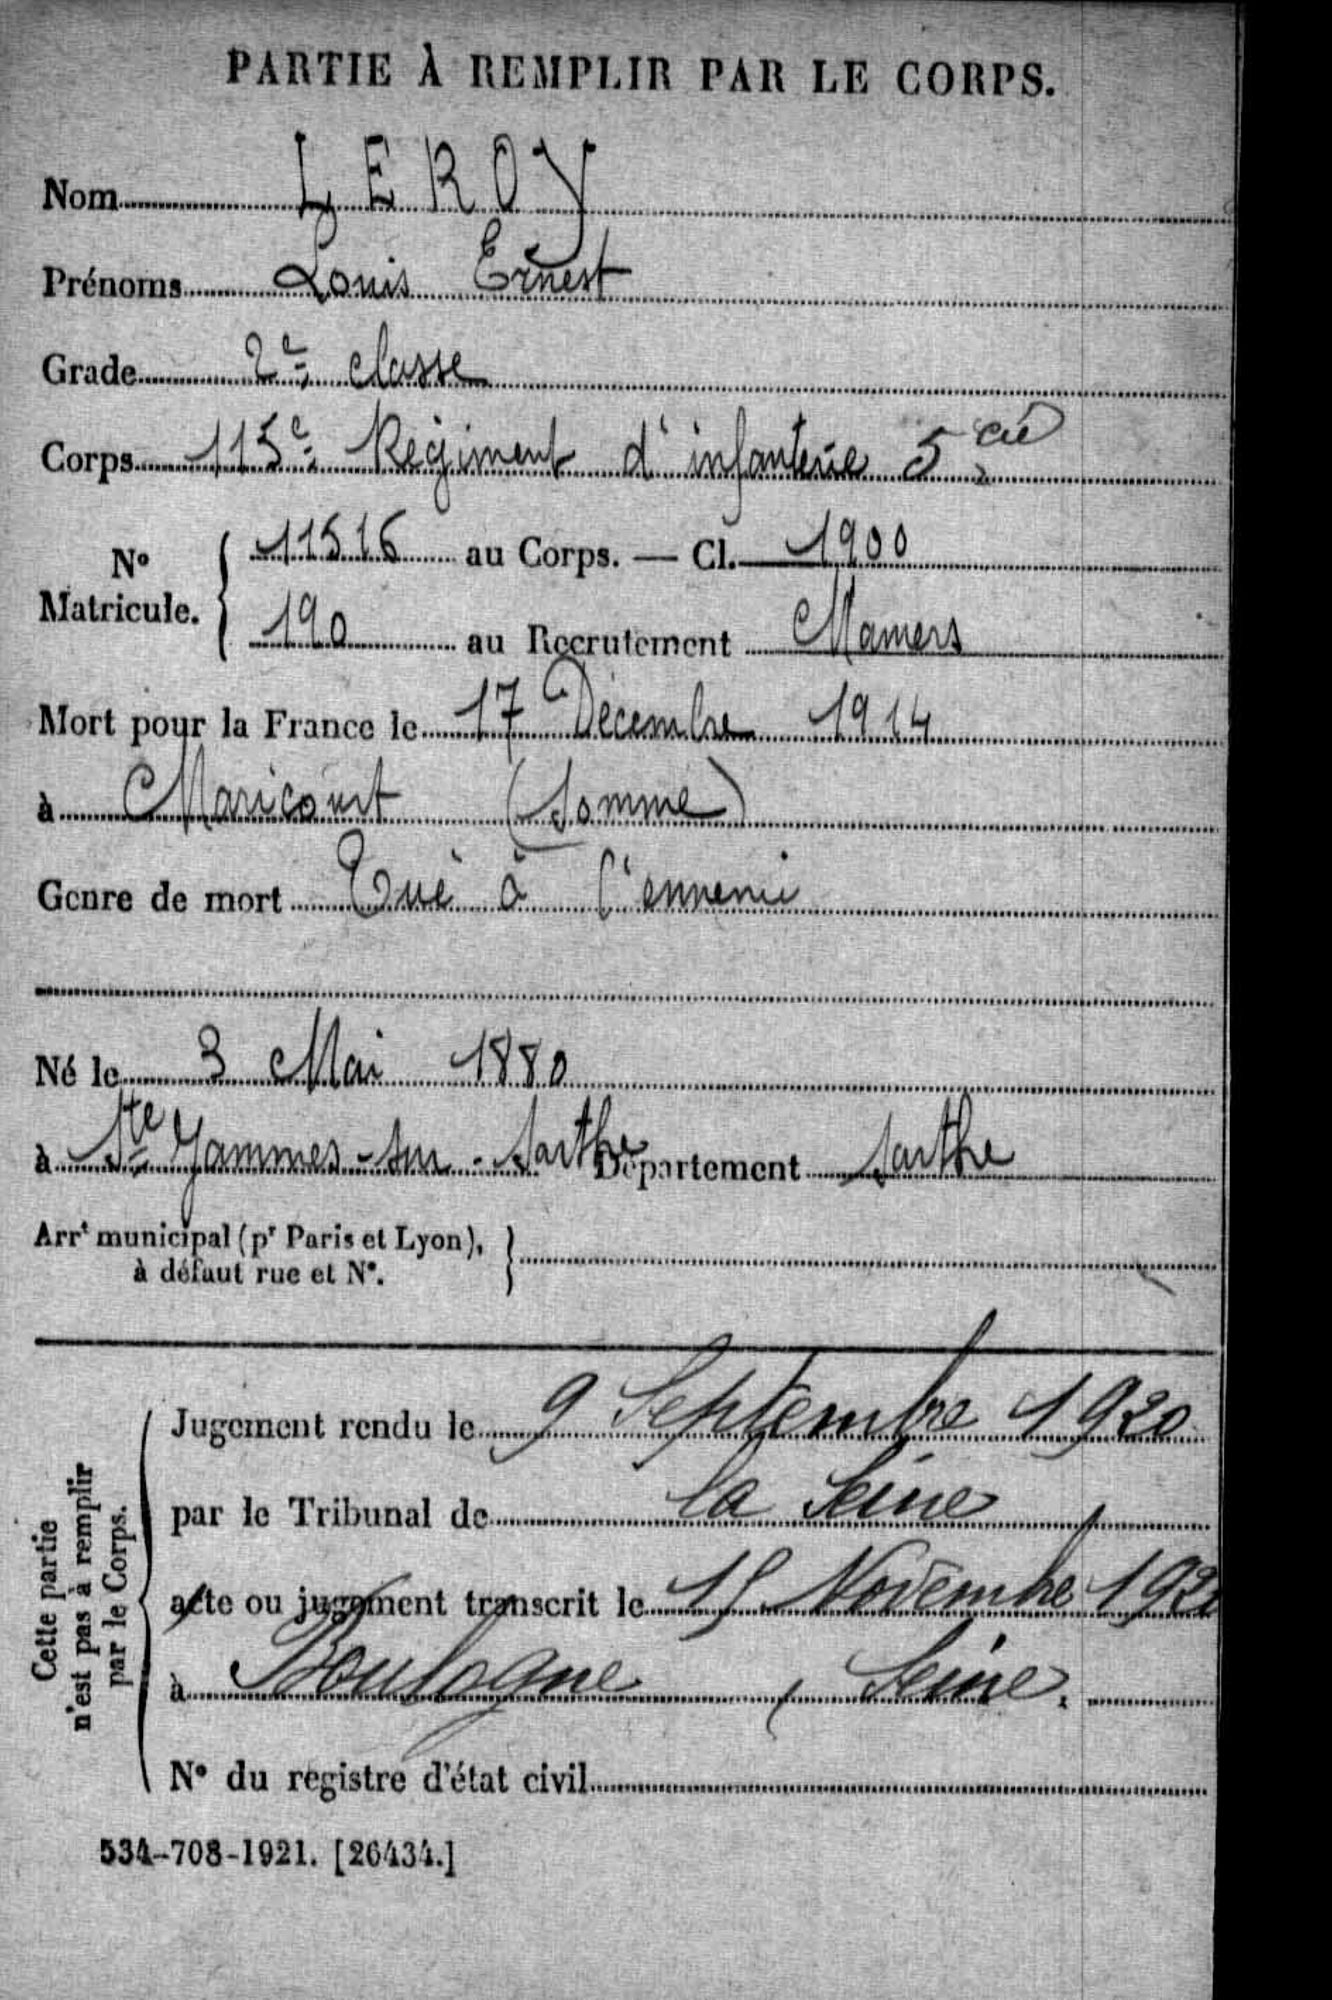 PARTIE À REMPLIR PAR LE CORPS.
Nom LEROY
Prénoms Louis Ernest
Grade 2e classe
Corps 115e Régiment d'infanterie 5 cie
No Matricule. 11516 au Corps. — Cl. 1900
190 au Recrutement Mamers
Mort pour la France le 17 Décembre 1914
à Maricourt (Somme)
Genre de mort Tué à l'ennemi
Né le 3 Mai 1880
à Ste Jammes-sur-Sarthe Département Sarthe
Arrt municipal (pr Paris et Lyon),
à défaut rue et N°.
Cette partie
n'est pas à remplir
par le Corps.
Jugement rendu le 9 Septembre 1920
par le Tribunal de la Seine
acte ou jugement transcrit le 15 Novembre
à Boulogne, Seine.
N° du registre d'état civil
534-708-1921. [26434.]